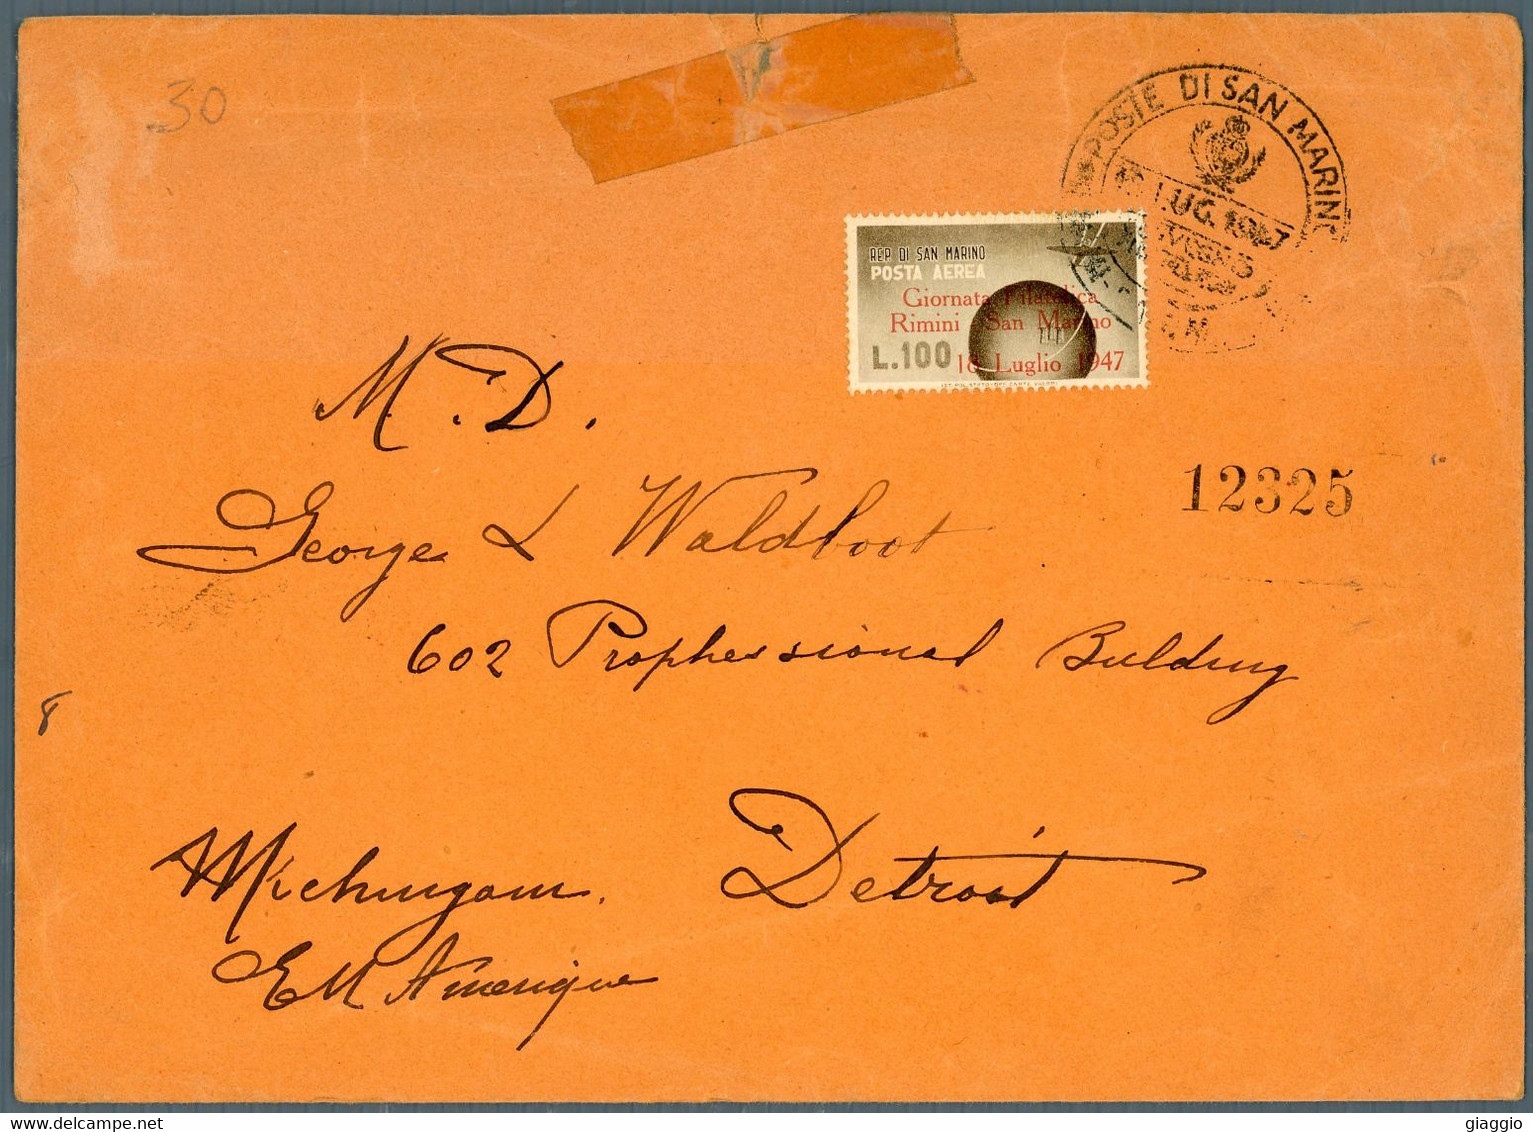 30
POSTE DI SAN MARINO
LUG. 1947
REP. DI SAN MARINO
POSTA AEREA
Giornata Filatelica
Rimini San Marino
L.100 18 Luglio 1947
M. D.
George L Waldboot
12325
602 Prophessional Bulding
8
Detroit
Michugam.
EM Amerique
delcampe.net
giaggio